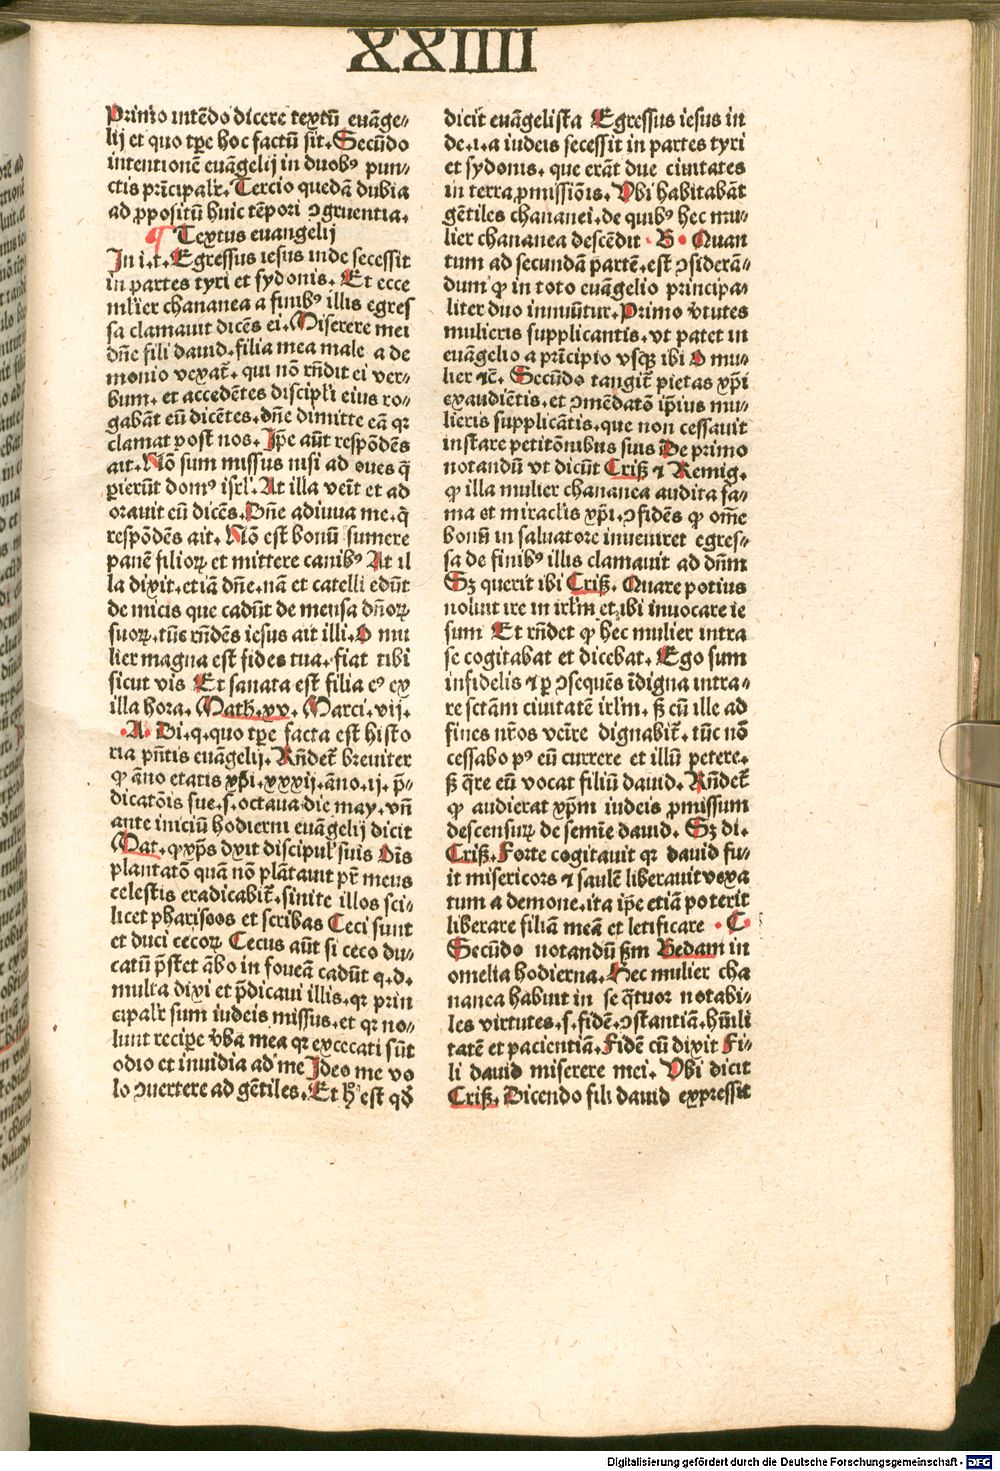 XXIIII
Primo intẽdo dicere textũ euãge-
lij et quo tp̃e hoc factũ sit. Secũdo
intentionẽ euãgelij in duobꝰ pun-
ctis pr̃icipalr̃. Tercio quedã dubia
ad ꝓpositũ huic tẽpori ꝯgruentia.
¶ Textus euangelij
In i.t. Egressus iesus inde secessit
in partes tyri et sydonis. Et ecce
ml̃ier chananea a finibꝰ illis egres
sa clamauit dicẽs ei. Miserere mei
dñe fili dauid. filia mea male a de
monio vexat̃. qui nõ rñdit ei ver-
bum. et accedẽtes discipl̃i eius ro-
gabãt eũ dicẽtes. dñe dimitte eã qꝛ
clamat post nos. Ip̃e aũt respõdẽs
ait. Nõ sum missus nisi ad oues q̃
ꝑierũt domꝰ isrl̃. At illa veñt et ad
orauit eũ dicẽs. Dñe adiuua me. q̃
respõdẽs ait. Nõ est bonũ sumere
panẽ filioꝝ et mittere canibꝰ At il
la dixit. etiã dñe. nã et catelli edũt
de micis que cadũt de mensa dñoꝝ
suoꝝ. tũc rñdẽs iesus ait illi. O mu
lier magna est fides tua. fiat tibi
sicut vis Et sanata est filia eꝰ ex
illa hora. Math. xv. Marci. vij.
.A. Di. q. quo tp̃e facta est histo
ria pñtis euãgelij. Rñdet̃ breuiter
ꝙ ãno etatis xp̃i .xxxij. ãno .ij. p̃-
dicatõis sue .s. octaua die may. vñ
ante iniciũ hodierni euãgelij dicit
Mat. ꝙ xp̃s dixit discipul̃ suis Om̃is
plantatõ quã nõ plãtauit pr̃ meus
celestis eradicabit̃. sinite illos sci-
licet phariseos et scribas Ceci sunt
et duci cecoꝝ Cecus aũt si ceco du-
catũ p̃stet ãbo in foueã cadũt q.d.
multa dixi et p̃dicaui illis. qꝛ prin
cipalr̃ sum iudeis missus. et qꝛ no-
lunt recipe v̾ba mea qꝛ excecati sũt
odio et inuidia ad me Ideo me vo
lo ꝯuertere ad gẽtiles. Et h̾ est qđ
dicit euãgelista Egressus iesus in
de .i. a iudeis secessit in partes tyri
et sydonis. que erãt due ciuitates
in terra ꝓmissiõis. Vbi habitabãt
gẽtiles chananei. de quibꝰ hec mu-
lier chananea descẽdit .B. Quan
tum ad secundã partẽ. est ꝯsiderã-
dum ꝙ in toto euãgelio principa-
liter duo innuũtur. Primo v̾tutes
mulieris supplicantis. vt patet in
euãgelio a pr̃icipio vsqꝫ ibi O mu-
lier ⁊c̃. Secũdo tangit̃ pietas xp̃i
exaudiẽtis. et ꝯmẽdatõ ip̃ius mu-
lieris supplicãtis. que non cessauit
instare petitõnibus suis De primo
notandũ vt dicũt Criß ⁊ Remig.
ꝙ illa mulier chananea audita fa-
ma et miraclis xp̃i. ꝯfidẽs ꝙ om̃e
bonũ in saluatore inueniret egres-
sa de finibꝰ illis clamauit ad dñm
Sꝫ querit ibi Criß. Quare potius
noluit ire in irl̃m et ibi inuocare ie
sum Et rñdet ꝙ hec mulier intra
se cogitabat et dicebat. Ego sum
infidelis ⁊ ꝑ ꝯsequẽs ĩdigna intra-
re sctãm ciuitatẽ irl̃m. ß cũ ille ad
fines nr̃os veĩre dignabit̃. tũc nõ
cessabo pꝰ eũ currere et illũ petere.
ß q̃re eũ vocat filiũ dauid. Rñdet̃
ꝙ audierat xp̃m iudeis ꝓmissum
descensuꝝ de semĩe dauid. Sꝫ di.
Criß. Forte cogitauit qꝛ dauid fu-
it misericors ⁊ saulẽ liberauit vexa
tum a demone. ita ip̃e etiã poterit
liberare filiã meã et letificare .C.
Secũdo notandũ ẜm Bedam in
omelia hodierna. Hec mulier cha
nanea habuit in se q̃tuor notabi-
les virtutes. s. fidẽ. ꝯstantiã. hũili
tatẽ et pacientiã. Fidẽ cũ dixit Fi-
li dauid miserere mei. Vbi dicit
Criß. Dicendo fili dauid expressit
Digitalisierung gefördert durch die Deutsche Forschungsgemeinschaft - DFG